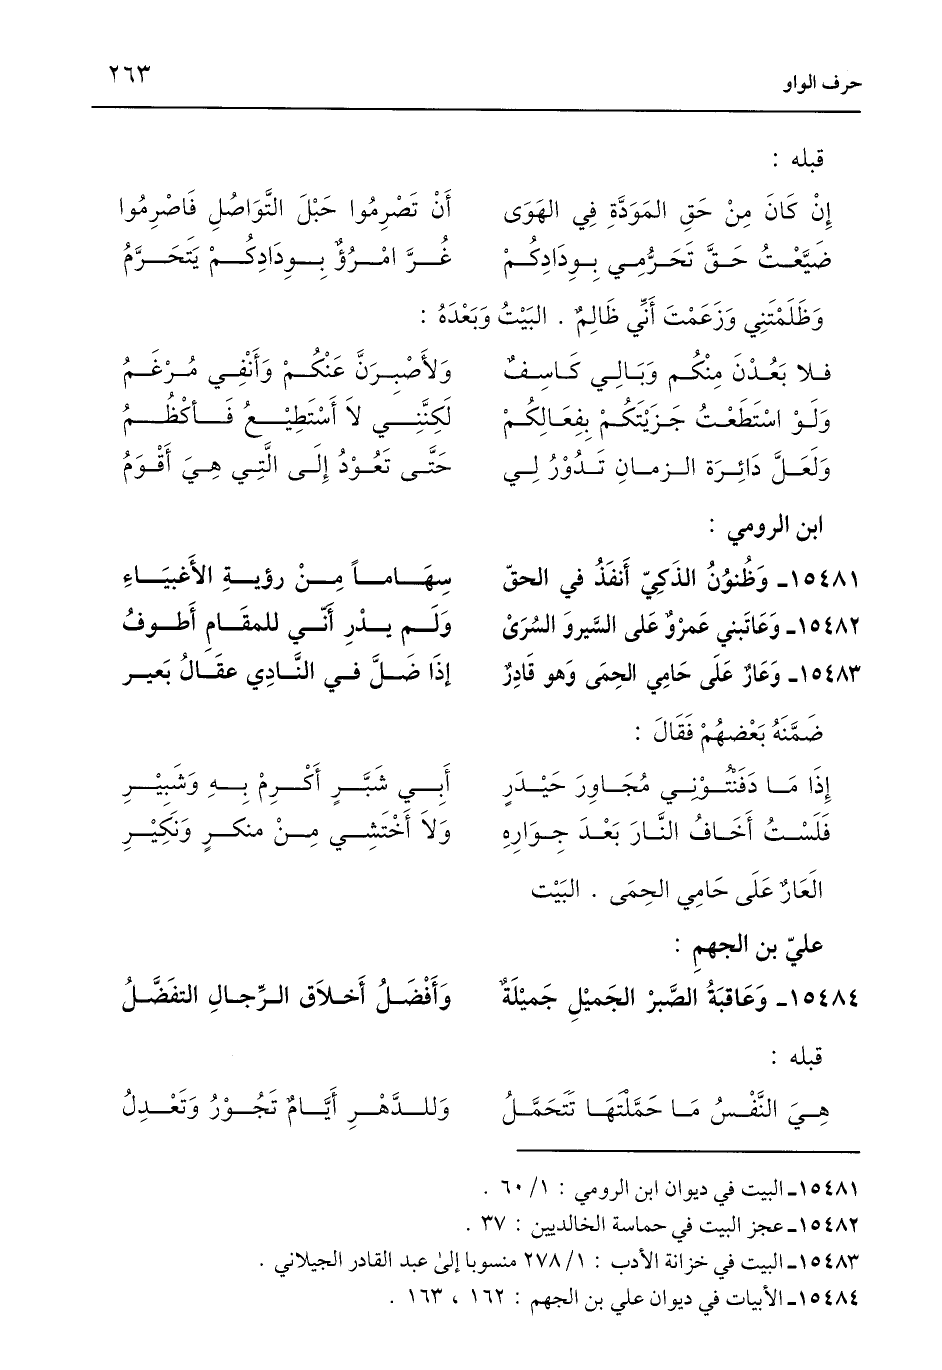 حرف الواو ٢٦٣
قبله :
إِنْ كَانَ مِنْ حَقِ المَوَدَّةِ فِي الهَوَى أَنْ تَصْرِمُوا حَبْلَ التَّوَاصُلِ فَاصْرِمُوا
ضَيَّعْتُ حَقَّ تَحَرُّمِي بِوِدَادِكُمْ غُرَّ امْرُؤٌ بِوِدَادِكُمْ يَتَحَرَّمُ
وَظَلَمْتِنِي وَزَعَمْتَ أَنِّي ظَالِمٌ . البَيْتُ وَبَعْدَهُ :
فَلا بَعُدْنَ مِنْكُم وَبَالِي كَاسِفٌ وَلأَصْبِرَنَّ عَنْكُمْ وَأَنْفِي مُرْغَمُ
وَلَوْ اسْتَطَعْتُ جَزَيْتَكُمْ بِفِعَالِكُمْ لَكِنَّنِي لاَ أَسْتَطِيْعُ فَأَكْظُمُ
وَلَعَلَّ دَائِرَةَ الزمانِ تَدُوْرُ لِي حَتَّى تَعُوْدُ إِلَى الَّتِي هِيَ أَقْوَمُ
ابن الرومي :
١٥٤٨١ـ وَظُنوْنُ الذَكِيّ أَنفَذُ في الحقّ سِهَاماً مِنْ رؤيةِ الأَغبيَاءِ
١٥٤٨٢ـ وَعَاتَبني عَمرْوٌ عَلى السَّيرِو السُرَىْ وَلَم يدرِ أنّي للمقَامِ أَطوفُ
١٥٤٨٣ـ وَعَارٌ عَلَى حَامِي الحِمَى وَهو قَادِرٌ إذَا ضَلَّ في النَّادِي عقَالُ بَعيرِ
ضَمَّنَهُ بَعْضهُمْ فَقَالَ :
إِذَا مَا دَفَنْتُوْنِي مُجَاورَ حَيْدَرٍ أَبِي شَبَّرٍ أَكْرِمْ بِهِ وَشَبِيْرِ
فَلَسْتُ أَخَافُ النَّارَ بَعْدَ جِوَارِهِ وَلاَ أَخْتَشِي مِنْ منكرٍ وَنَكِيْرِ
العَارٌ عَلَى حَامِي الحِمَى . البَيْت
عليّ بن الجهم :
١٥٤٨٤ـ وَعَاقبَةُ الصَّبرْ الجَميْلِ جَمِيْلَةٌ وَأَفْضَلُ أَخلاَق الرِّجالِ التفَضَّلُ
قبله :
هِيَ النَّفْسُ مَا حَمَّلْتَهَا تَتَحَمَّلُ وَللدَّهْرِ أَيَّامٌ تَجُوْرُ وَتَعْدِلُ
١٥٤٨١ـ البيت في ديوان ابن الرومي : ١/ ٦٠ .
١٥٤٨٢ـ عجز البيت في حماسة الخالديين : ٣٧ .
١٥٤٨٣ـ البيت في خزانة الأدب : ١/ ٢٧٨ منسوبا إلى عبد القادر الجيلاني .
١٥٤٨٤ـ الأبيات في ديوان علي بن الجهم : ١٦٢ ، ١٦٣ .